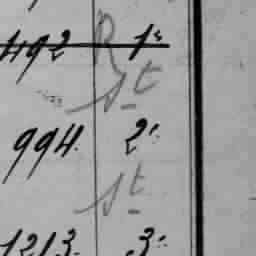 492 R 1.
St
994. 2.
St
1213. 3.